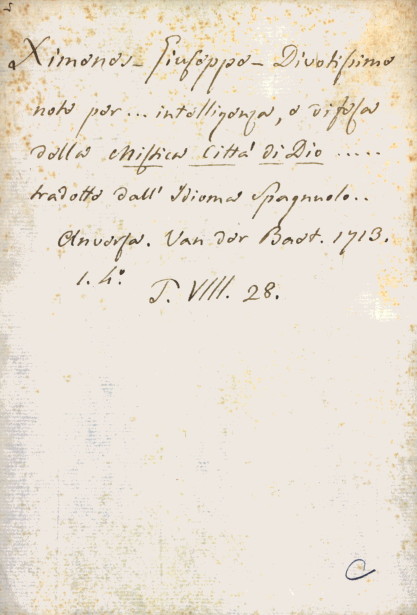 Ximenes - Giuseppe - Divotissime
note per ... intelligenza, e difesa
della Mistica Città di Dio .....
tradotte dall' Idioma Spagnuolo ..
Anversa. Van der Bast. 1713.
1. 4.º
T. VIII. 28.
C